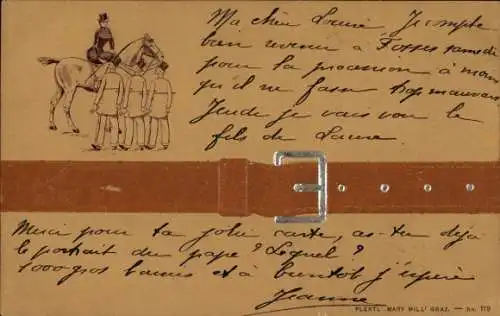 Ma chère Louise Je compte
bien revenir à Fosses samedi
pour la procession à moins
qu'il ne fasse trop mauvais
Jeudi je vais voir le
fils de Laure
Merci pour ta jolie carte, as-tu déjà
le portrait du pape? Lequel?
1000 gros baisers et à bientôt j'espère
Jeanne
PLENTL "MATY MILL" GRAZ. — No. 119